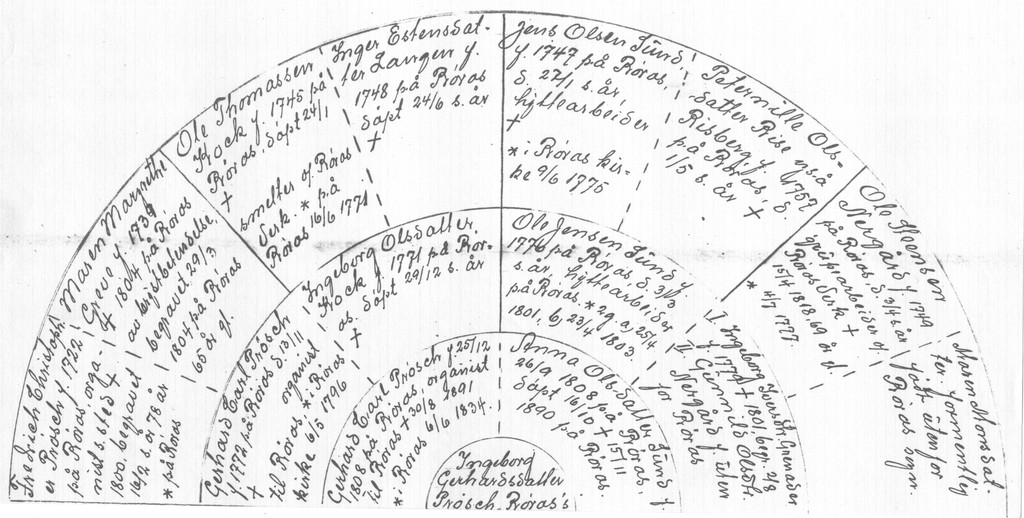 Friedrich Christoph-
er Prösch f. 1722.
på Røros, orga-
nist s. sted †
1800, begravet
16/2 s. år, 78 år
* på Røros
Maren Margrethe
Greve f. 1739
† 1804 på Røros
av brystbetendelse,
begravet 29/3
1804 på Røros
65 år gl.
Ole Thomassen
Kock f. 1745 på
Røros. døpt 24/1
†
smelter og Røros
Serk. * på
Røros 16/6 1771
Inger Estensdat-
ter Langen f.
1748 på Røros
døpt 24/6 s. år
†
Jens Olsen Sund,
f. 1747 på Røros,
d. 27/1 s. år,
hyttearbeider
†
* i Røros kir-
ke 9/6 1775
Peternille Ols-
datter Rise
Risberg f. 1757
på Røros, d
1/5 s. år †
Ole Moensen
Nergård f. 1749
på Røros d. 3/4 s. år
grubearbeider og
Røros Serk †
15/4 1818 69 år gl
* 1777.
Maren Monsdat-
ter formentlig
født uten for
Røros sogn.
Gerhard Carl Prösch
f. 1772 på Røros d. 13/11
† organist
til Røros, * i Røros
kirke 6/5 1796
Ingeborg Olsdatter
Kock f. 1771 på Rør-
os. døpt 29/12 s. år
†
Ole Jensen Sund f.
1776 på Røros, d. 3/3
s. år, hyttearbeider
på Røros. * 2 g. a) 25/4
1801, b) 23/4 1803.
I Ingeborg
f. 1779 † 1801, begr. 2/8
II Gunnild Olsdtr.
Nergård f. uten
for Røros
Gerhard Carl Prösch f. 25/12
1808 på Røros, organist
til Røros † 30/8 1891
* i Røros 6/6 1834.
Anna Olsdatter Sund f.
26/9 1808 på Røros.
døpt 16/10 † 15/11
1890 på Røros.
Ingeborg
Gerhardsdatter
Prösch, Røros's